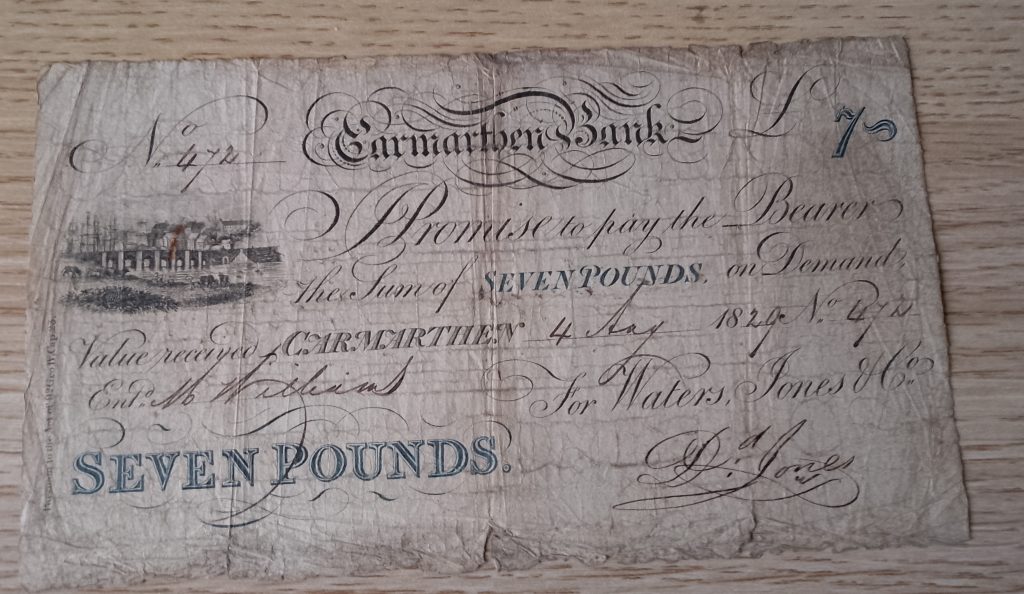 No. 472 Carmarthen Bank £7
I Promise to pay the Bearer
the Sum of SEVEN POUNDS. on Demand,
Value received, CARMARTHEN 4 Aug 1829 No. 472
Entd. M Williams For Waters, Jones & Co.
SEVEN POUNDS. Dd. Jones